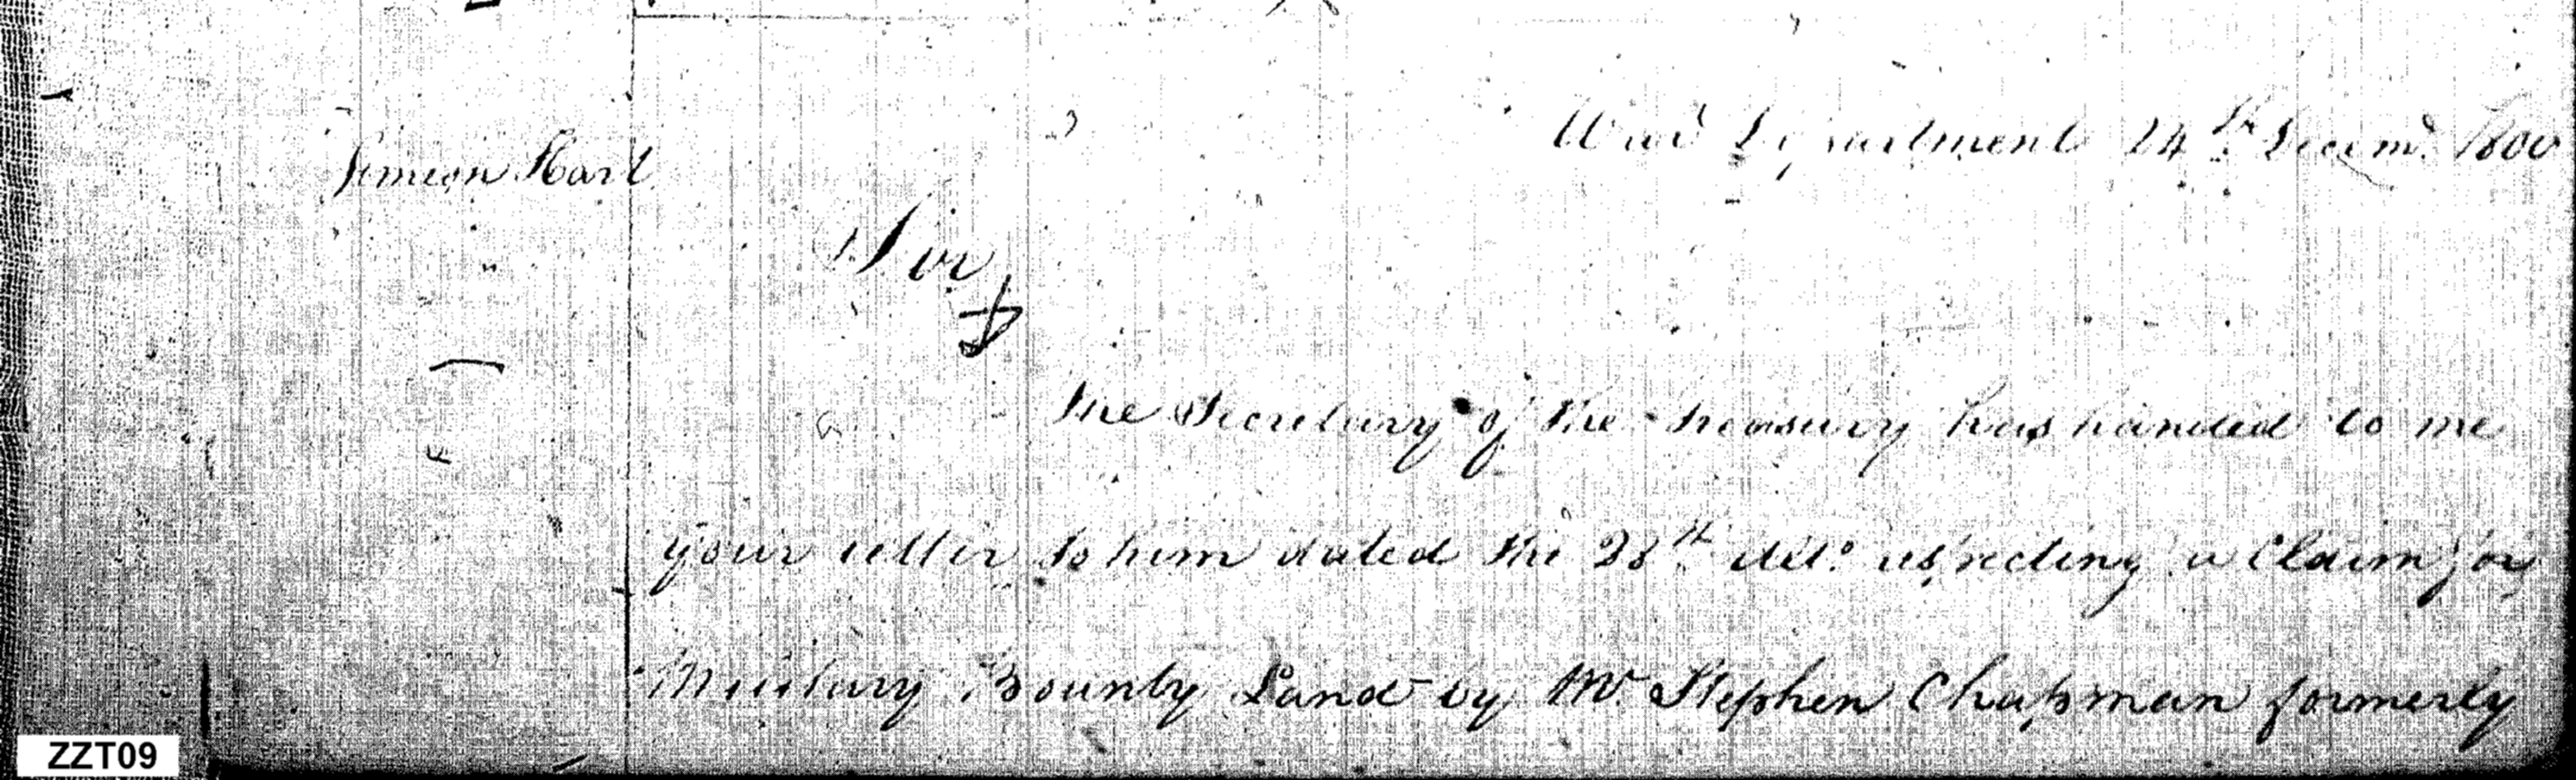 War Department 24th Decemr 1800
Simeon Hart
Sir
The Secretary of the Treasury has handed to me
your letter to him dated the 28th Ulto. respecting a Claim for
Military Bounty Land by Mr. Stephen Chapman formerly
ZZT09